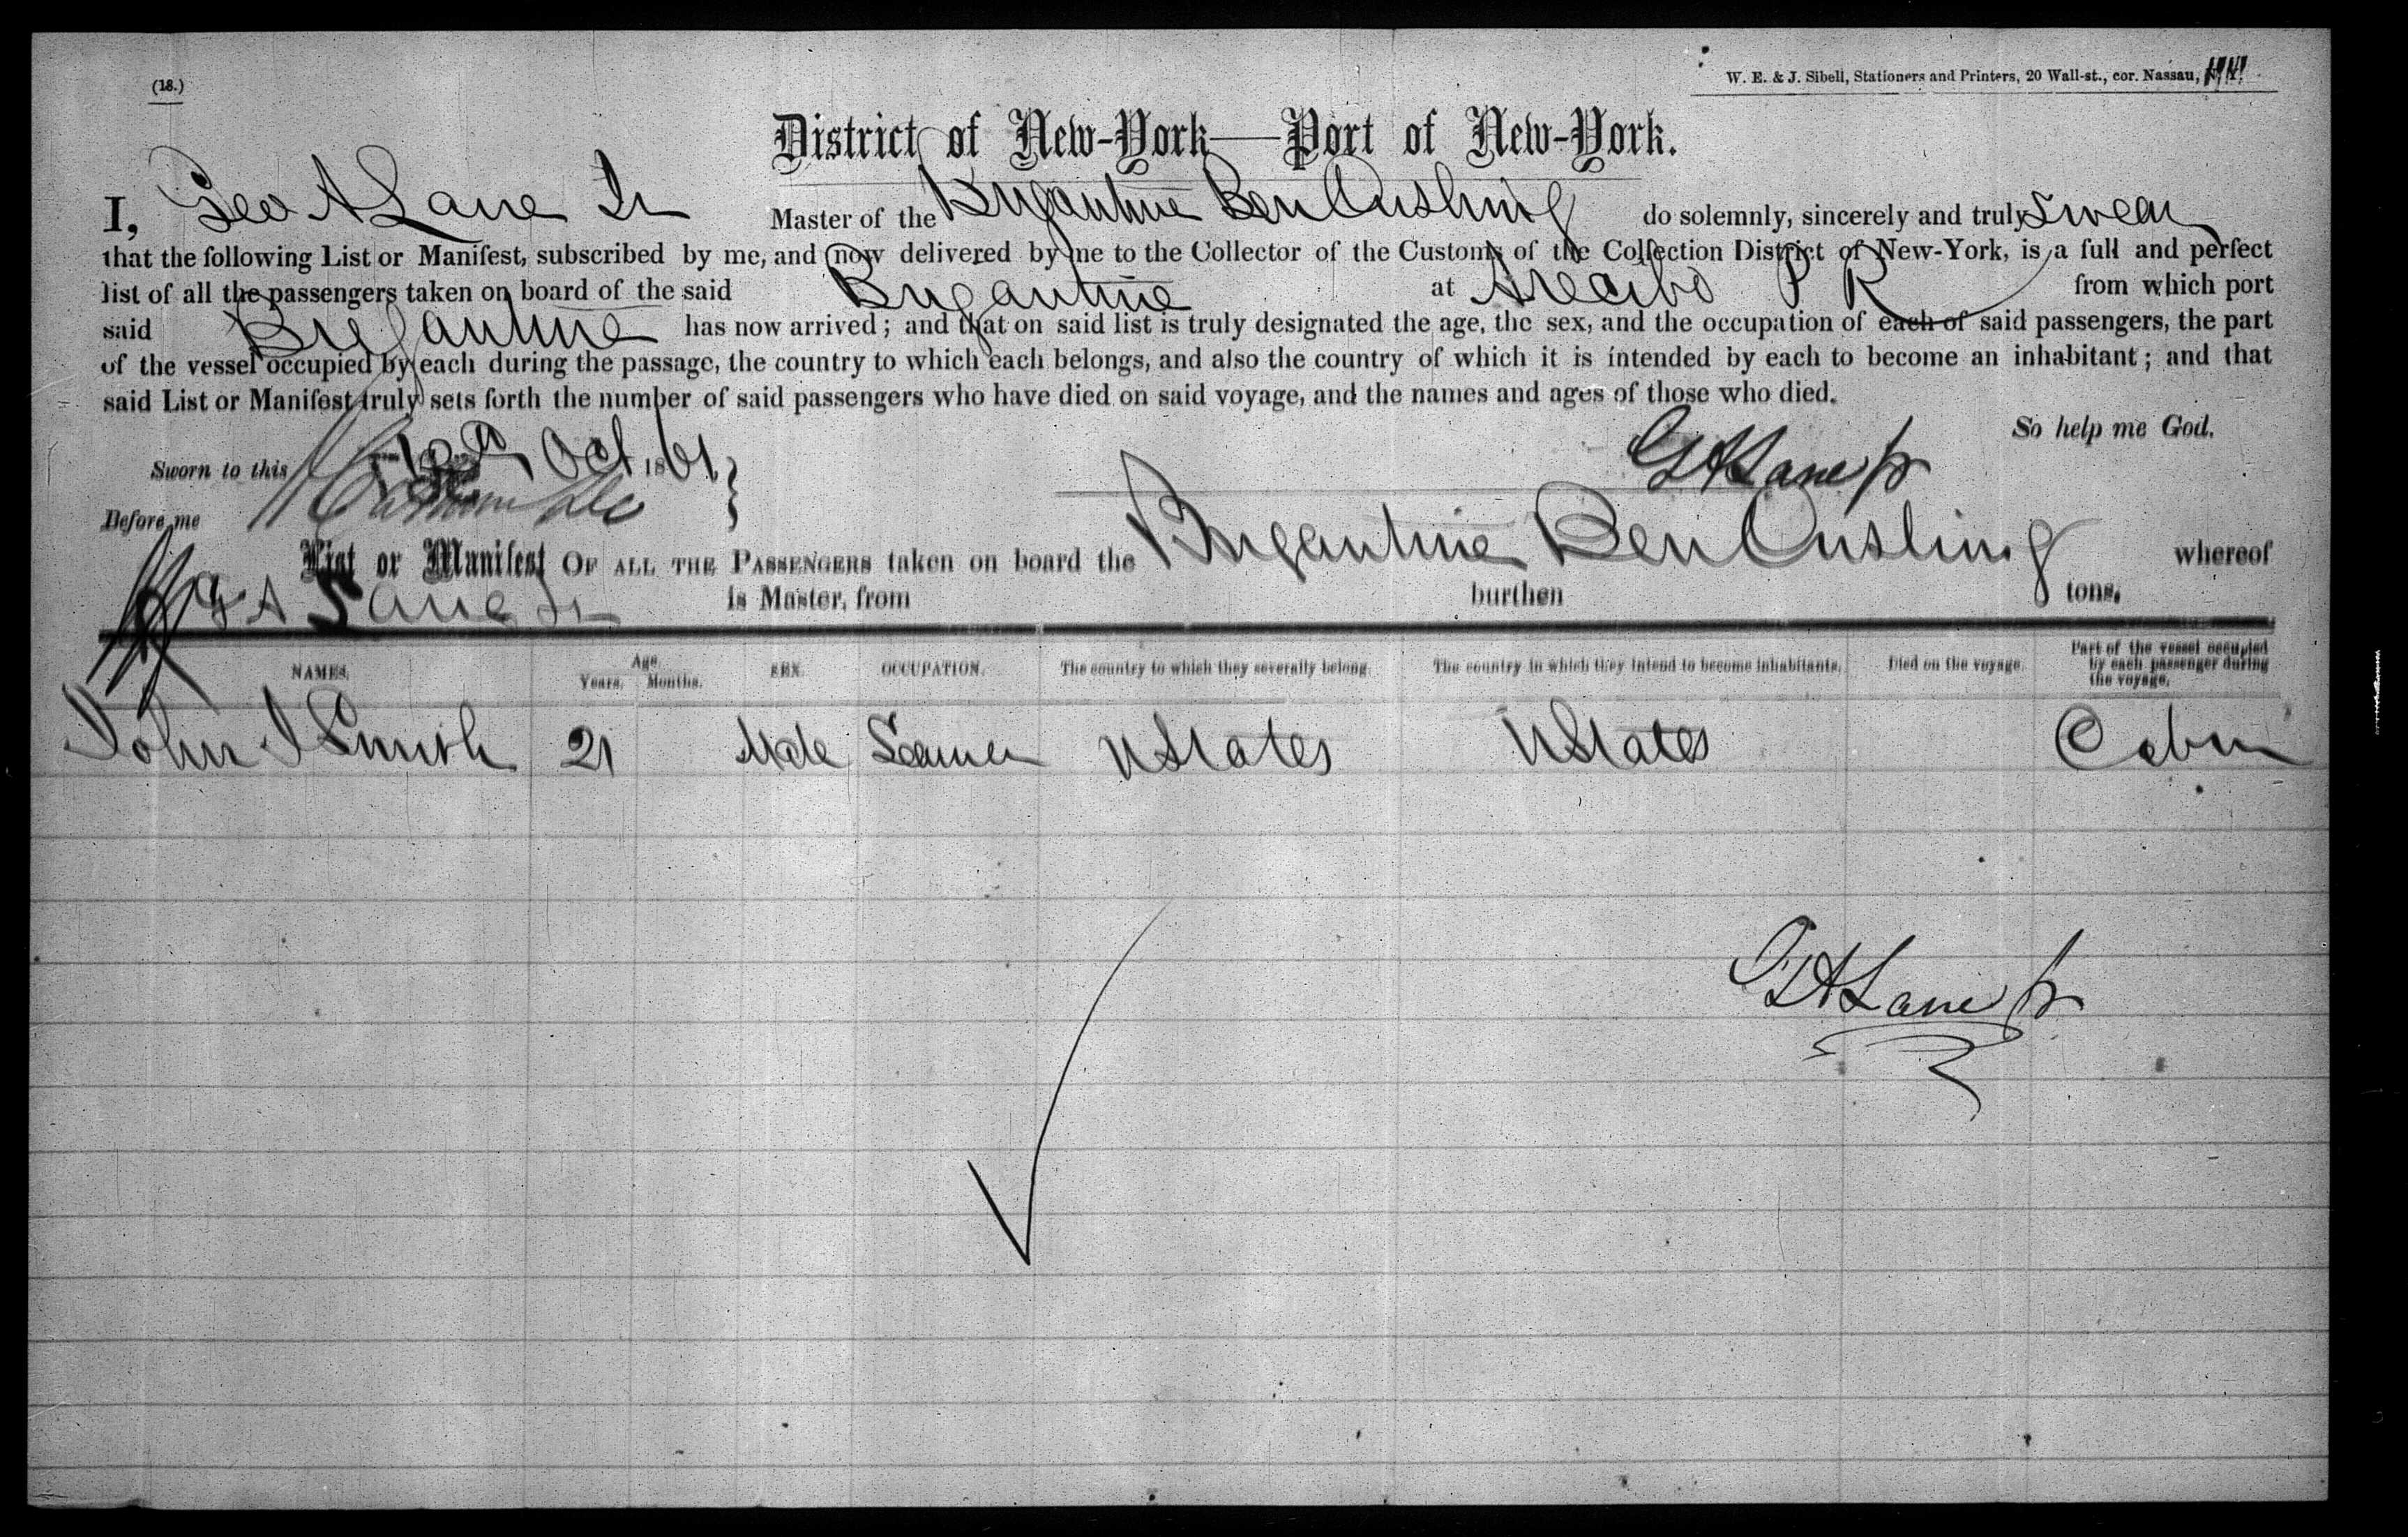 (18.)
W. E. & J. Sibell, Stationers and Printers, 20 Wall-st., cor. Nassau,
District of New-York—Port of New-York.
I, Geo A Lane Jr Master of the Brigantine Ben Cushing do solemnly, sincerely and truly swear
that the following List or Manifest, subscribed by me, and now delivered by me to the Collector of the Customs of the Collection District of New-York, is a full and perfect
list of all the passengers taken on board of the said Brigantine at Arecibo P R from which port
said Brigantine has now arrived; and that on said list is truly designated the age, the sex, and the occupation of each of said passengers, the part
of the vessel occupied by each during the passage, the country to which each belongs, and also the country of which it is intended by each to become an inhabitant; and that
said List or Manifest truly sets forth the number of said passengers who have died on said voyage, and the names and ages of those who died.
So help me God.
Sworn to this Oct 1861 G A Lane Jr
Before me
List or Manifest OF ALL THE PASSENGERS taken on board the Brigantine Ben Cushing whereof
G A Lane Jr is Master, from burthen tons.
NAMES. Age. Years. Months. SEX. OCCUPATION. The country to which they severally belong. The country in which they intend to become inhabitants. Died on the voyage. Part of the vessel occupied by each passenger during the voyage.
John I Smith 21 Male Seamen U States U States Cabin
G A Lane Jr